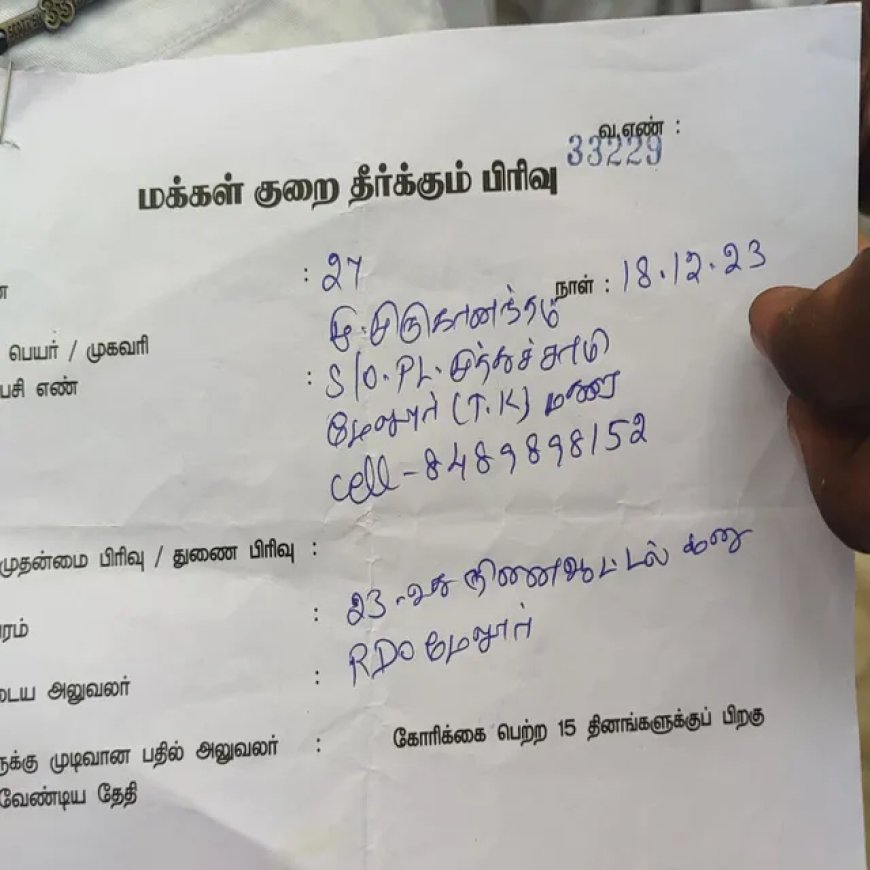 வ.எண் :
33229
மக்கள் குறை தீர்க்கும் பிரிவு
: 27
நாள் : 18.12.23
பெயர் / முகவரி
பசி எண் : S/O. PL. முத்துச்சாமி
மேலூர் (T.K)
cell - 8489898152
முதன்மை பிரிவு / துணை பிரிவு :
ரம் : 23-வது
டைய அலுவலர் : RDO மேலூர்
க்கு முடிவான பதில் அலுவலர் : கோரிக்கை பெற்ற 15 தினங்களுக்குப் பிறகு
வேண்டிய தேதி